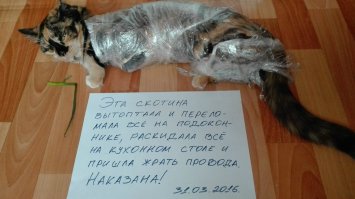 Эта скотина
вытоптала и перело-
мала всё на подокон-
нике, раскидала всё
на кухонном столе и
пришла жрать провода.
Наказана!
31.03.2016.